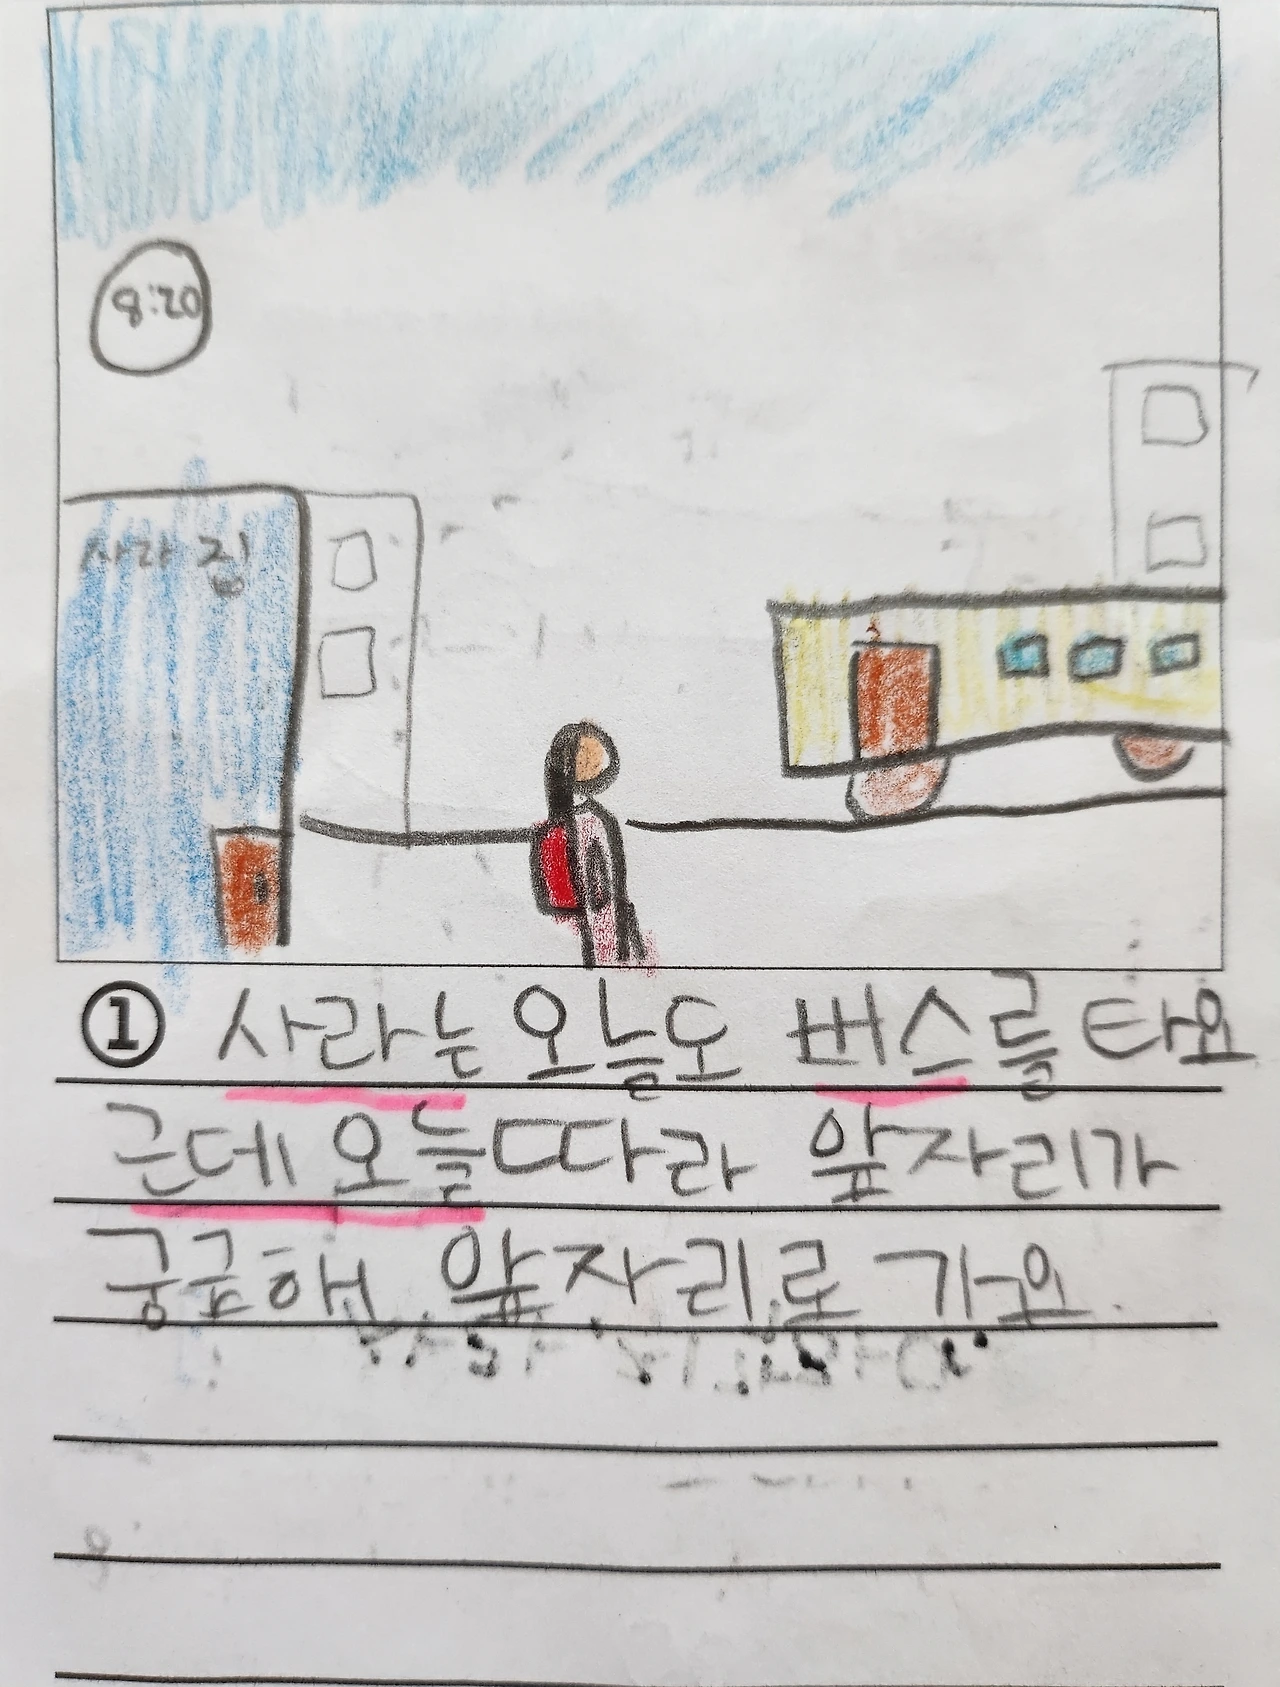 8:20
사라 집
① 사라는 오늘도 버스를 타요
근데 오늘따라 앞자리가
궁금해 앞자리로 가요.